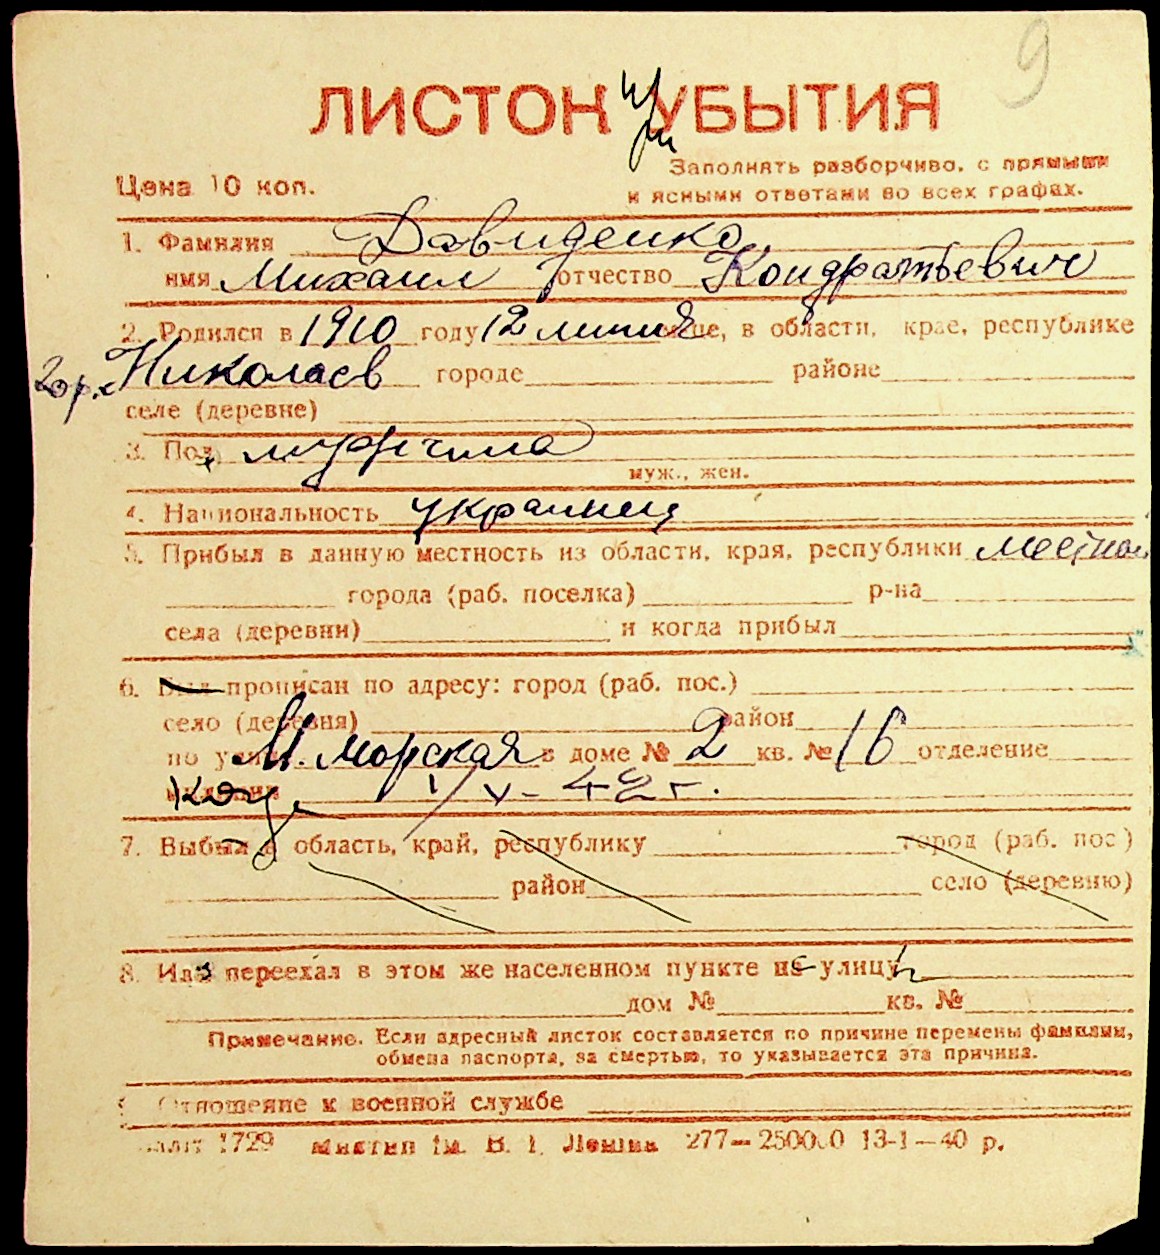 9
ЛИСТОК УБЫТИЯ
при
Цена 10 коп.
Заполнять разборчиво, с прямыми
и ясными ответами во всех графах.
1. Фамилия Давиденко
имя Михаил отчество Кондратьевич
2. Родился в 1910 году 12 июня в области, крае, республике
гор. Николаев городе районе
селе (деревне)
3. Пол мужчина
муж., жен.
4. Национальность украинец
5. Прибыл в данную местность из области, края, республики местный
города (раб. поселка) р-на
села (деревни) и когда прибыл
6. Был прописан по адресу: город (раб. пос.)
село (деревня) район
по улице М. Морская в доме № 2 кв. № 16 отделение
милиции 1/V-42 г.
7. Выбыл в область, край, республику город (раб. пос.)
район село (деревню)
8. Из переехал в этом же населенном пункте на улицу
дом № кв. №
Примечание. Если адресный листок составляется по причине перемены фамилии,
обмена паспорта, за смертью, то указывается эта причина.
9. Отношение к военной службе
1729 им. В. І. Леніна 277—250000 13-1—40 р.